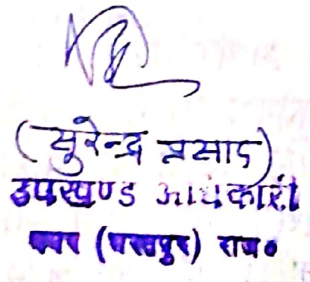 (सुरेन्द्र प्रसाद)
उपखण्ड अधिकारी
(भरतपुर) राज०